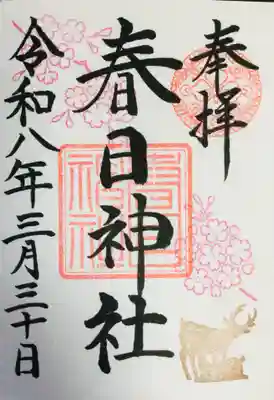 奉拝
春日神社
令和八年三月三十日